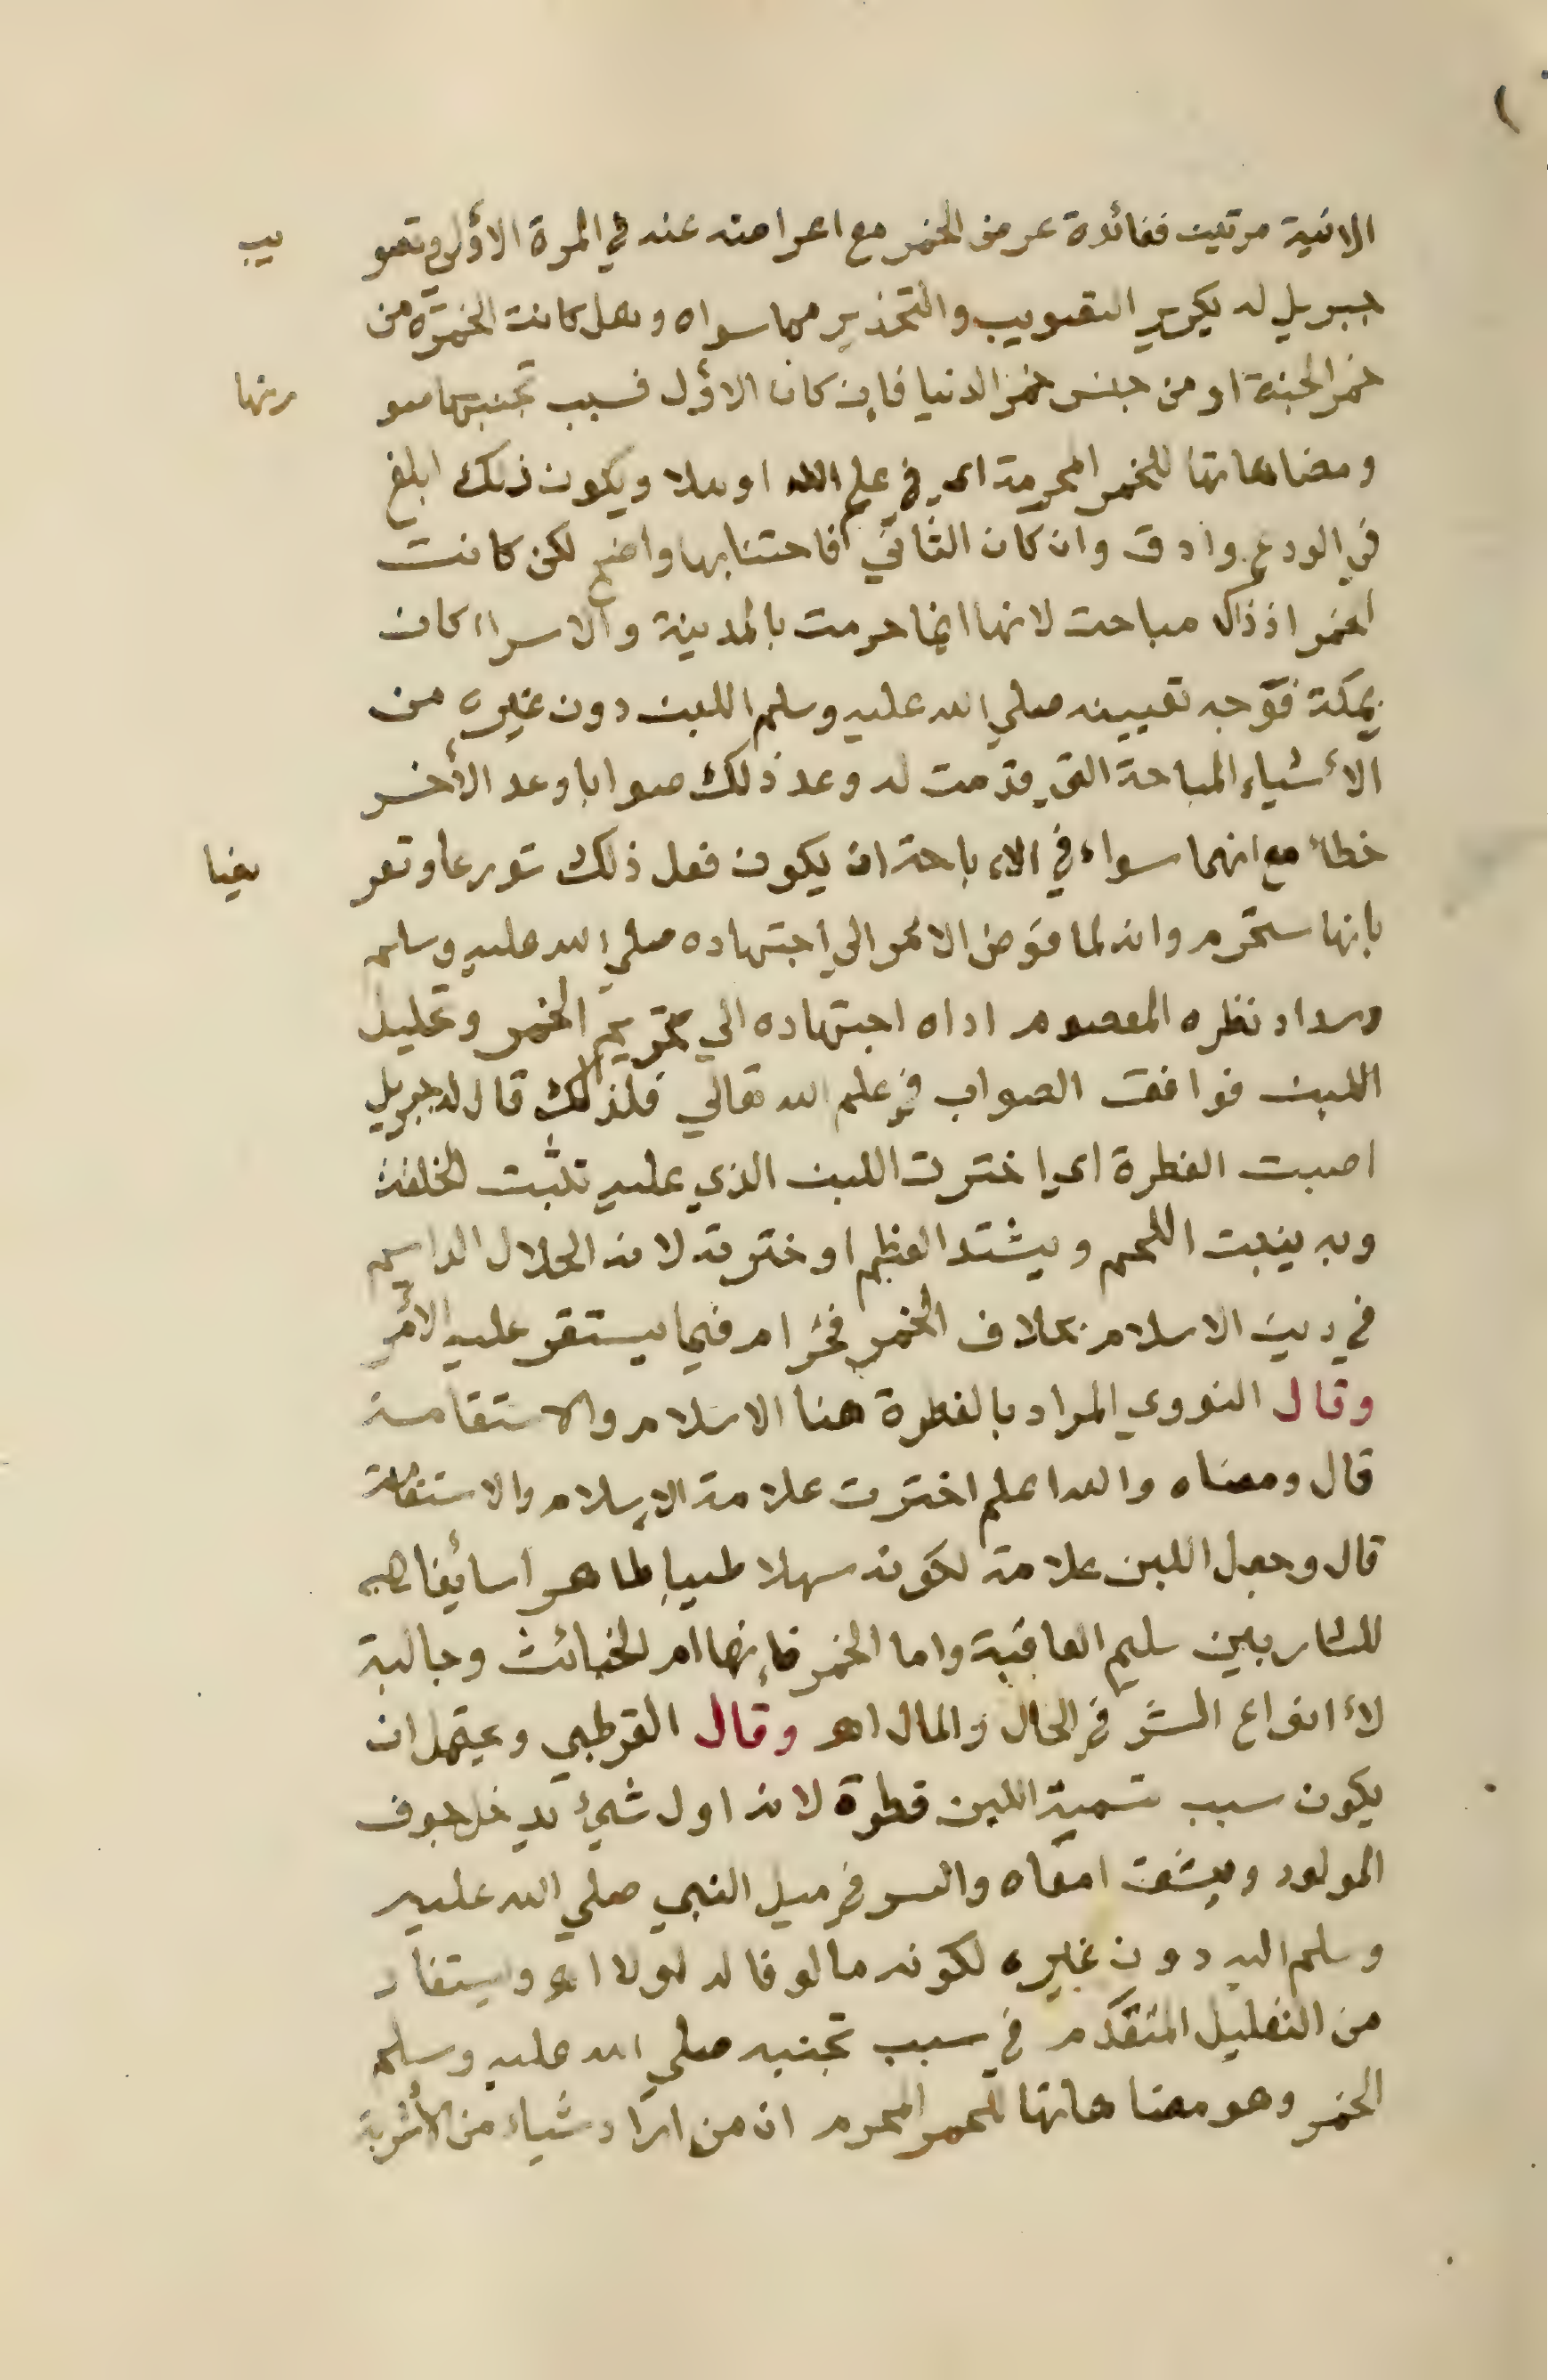 الانية مرتين ففائدة عرض الخمر مع اعراضه عنه في المرة الاولى وتصو يب
جبريل له تكرير التصويب والتحذير مما سواه وهل كانت الخمرة من
خمر الجنة او من جنس خمر الدنيا فان كان الاول فسبب تجنبها صو رتها
ومضاهاتها للخمر المحرمة اي في علم الله اولا ويكون ذلك ابلغ
في الورع وادق وان كان الثاني فاجتنابها واضح لكن كانت
الخمر اذ ذاك مباحة لانها انما حرمت بالمدينة والاسراء كان
بمكة فوجه تعيينه صلي الله عليه وسلم اللبن دون غيره من
الأشياء المباحة التي قدمت له وعد ذلك صوابا وعد الأخر
خطأ مع انهما سواء في الاباحة ان يكون فعل ذلك تورعا وتعر يضا
بانها ستحرم وانه لما فوض الامر الي اجتهاده صلي الله عليه وسلم
وسداد نظره المعصوم اداه اجتهاده الي تحريم الخمر وتحليل
اللبن فوافق الصواب في علم الله تعالي فلذلك قال له جبريل
اصبت الفطرة اي اخترت اللبن الذي عليه تثبت الخلقة
وبه ينبت اللحم ويشتد العظم او اخترته لانه الحلال الدايم
في دين الاسلام بخلاف الخمر فحرام فيما يستقر عليه الأمر
وقال النووي المراد بالفطرة هنا الاسلام والاستقامة
قال ومعناه والله اعلم اخترت علامة الاسلام والاستقامة
قال وجعل اللبن علامة لكونه سهلا طيبا طاهرا سائغا
للشاربين سليم العاقبة واما الخمر فإنها ام الخبائث وجالبة
لأ انواع الشر في الحال والمال اهـ وقال القرطبي ويحتمل ان
يكون سبب تسمية اللبن فطرة لانه اول شيئ يدخل جوف
المولود ويشق امعاه والسر في ميل النبي صلي الله عليه
وسلم اليه دون غيره لكونه مالوفا له اولا اهـ ويستفاد
من التعليل المتقدم في سبب تجنبه صلي الله عليه وسلم
الخمر وهو مضاهاتها للخمر المحرم ان من اراد شياء من الأشربة